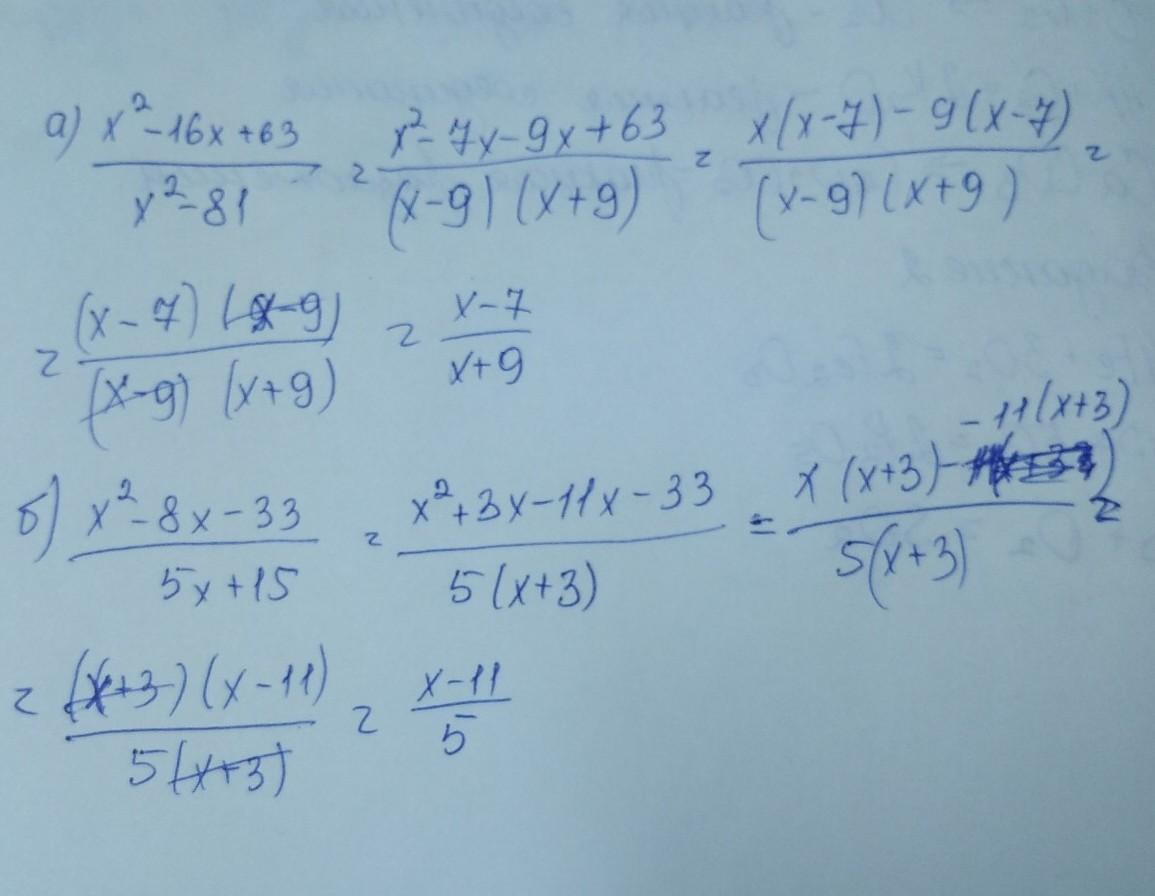 а) (x²-16x+63)/(x²-81) = (x²-7x-9x+63)/((x-9)(x+9)) = (x(x-7)-9(x-7))/((x-9)(x+9)) =
= ((x-7)(x-9))/((x-9)(x+9)) = (x-7)/(x+9)
б) (x²-8x-33)/(5x+15) = (x²+3x-11x-33)/(5(x+3)) = (x(x+3)-11(x+3))/(5(x+3)) =
= ((x+3)(x-11))/(5(x+3)) = (x-11)/5